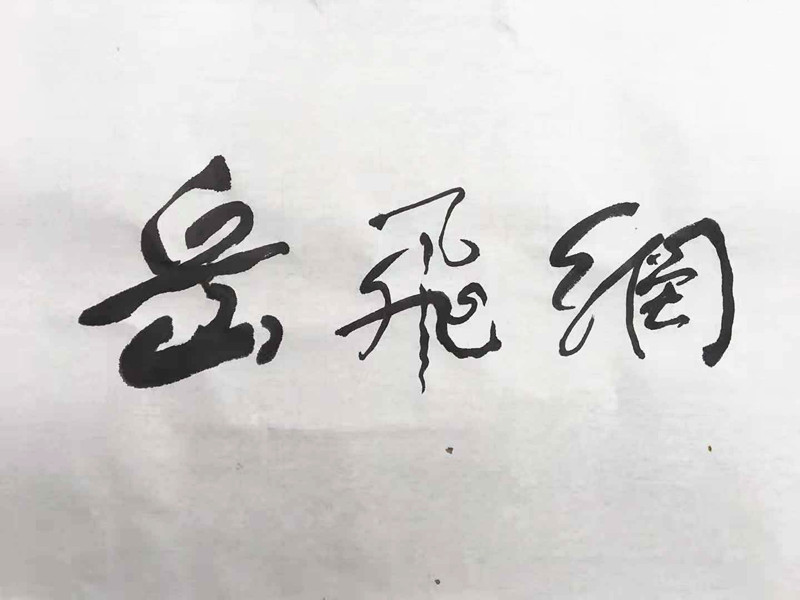 岳飛網